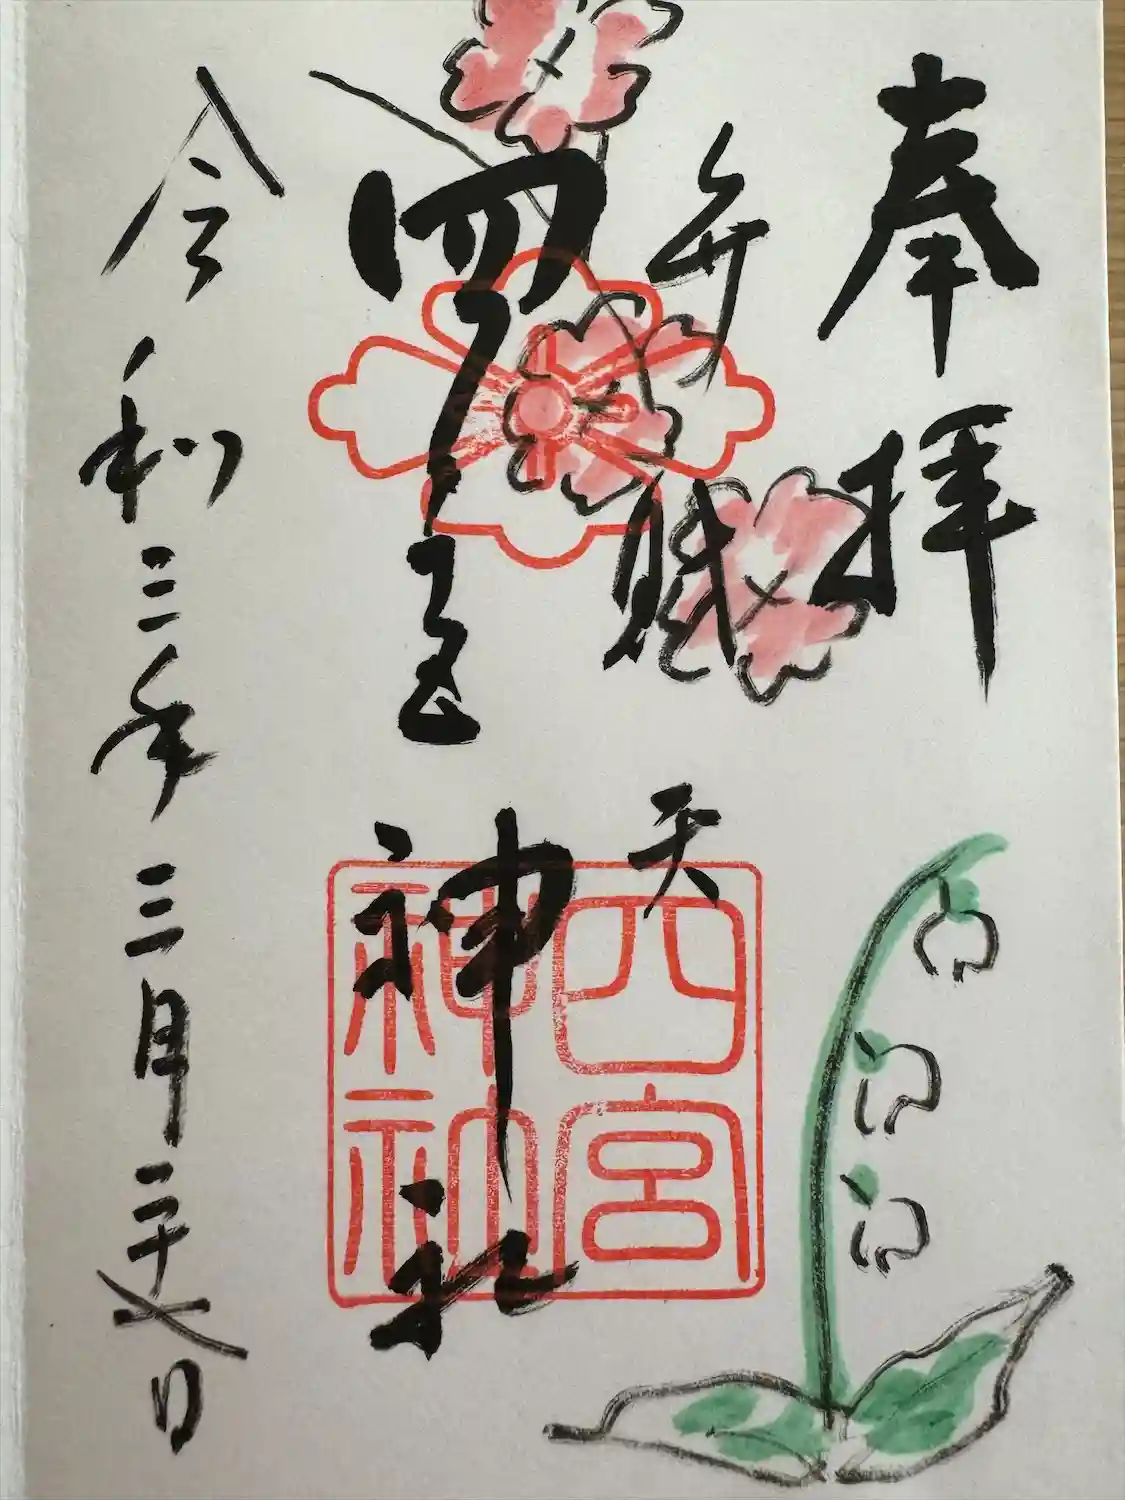 奉拝
弁財天
四宮神社
四宮
神社
令和三年三月二十七日